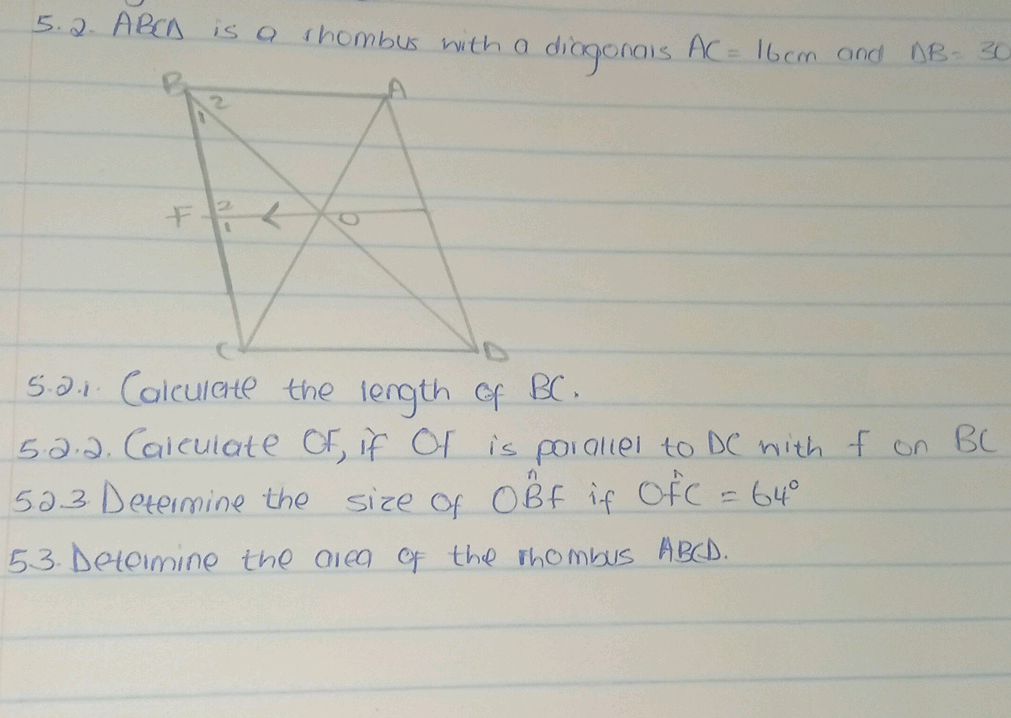 5.2. ABCD is a rhombus with a diagonals AC = 16cm and DB = 30
B
A
2
1
F
2
1
O
C
D
5.2.1. Calculate the length of BC.
5.2.2. Calculate OF, if OF is parallel to DC with f on BC
5.2.3 Determine the size of OB̂f if Of̂C = 64°
5.3. Determine the area of the rhombus ABCD.